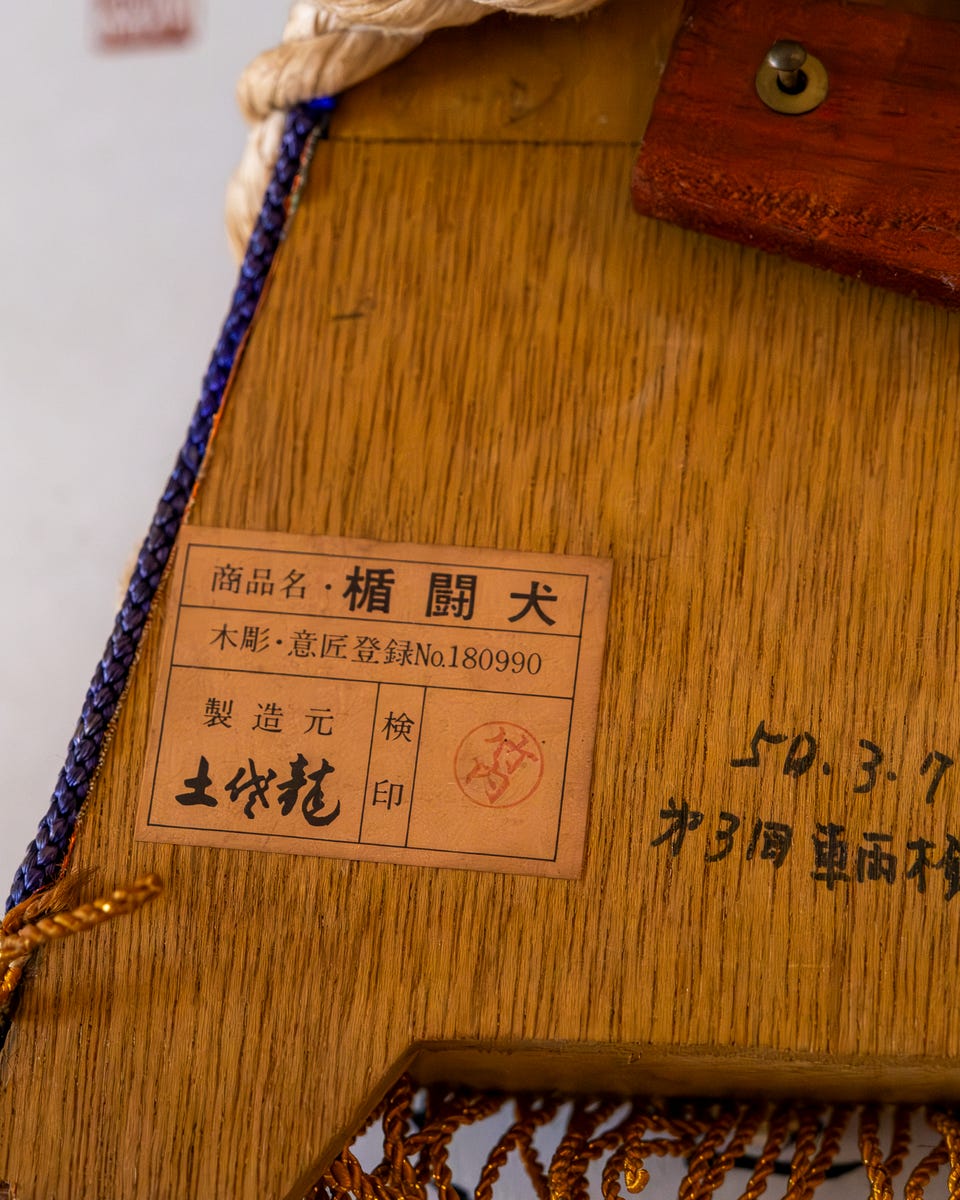 商品名・楯闘犬
木彫・意匠登録No.180990
製造元
土佐龍
検印
竹内
50.3.7
第3回車両検